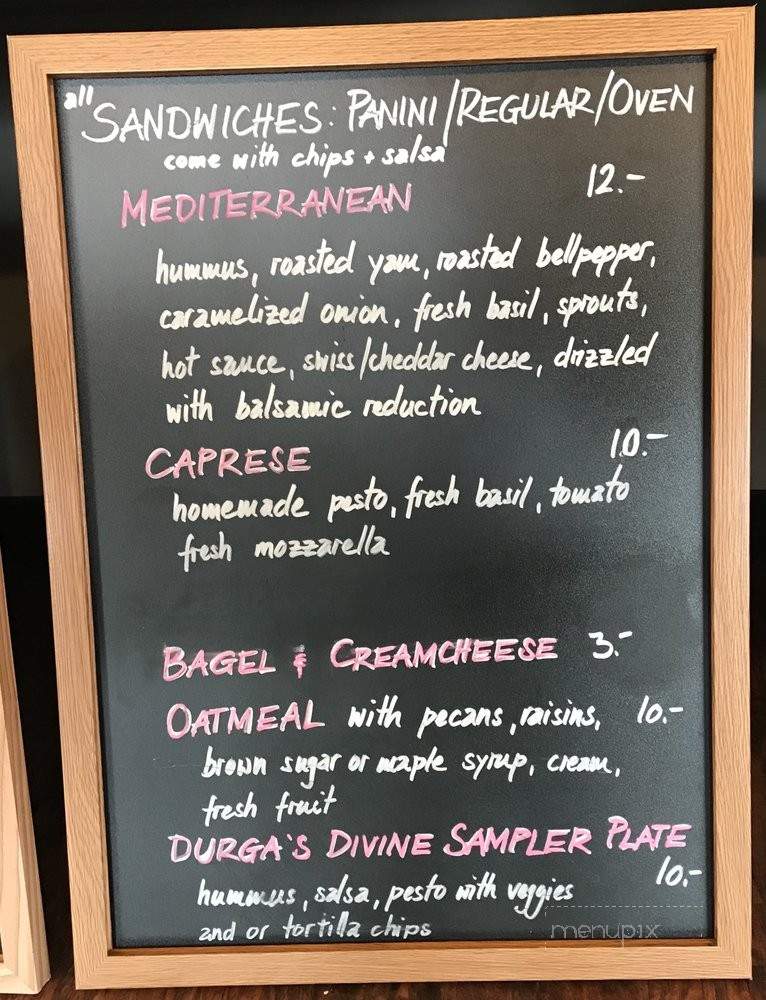 all SANDWICHES: PANINI/REGULAR/OVEN
come with chips + salsa
MEDITERRANEAN 12.-
hummus, roasted yam, roasted bellpepper,
caramelized onion, fresh basil, sprouts,
hot sauce, swiss/cheddar cheese, drizzled
with balsamic reduction
CAPRESE 10.-
homemade pesto, fresh basil, tomato
fresh mozzarella
BAGEL & CREAMCHEESE 3.-
OATMEAL with pecans, raisins, 10.-
brown sugar or maple syrup, cream,
fresh fruit
DURGA'S DIVINE SAMPLER PLATE
10.-
hummus, salsa, pesto with veggies
and or tortilla chips
menupix